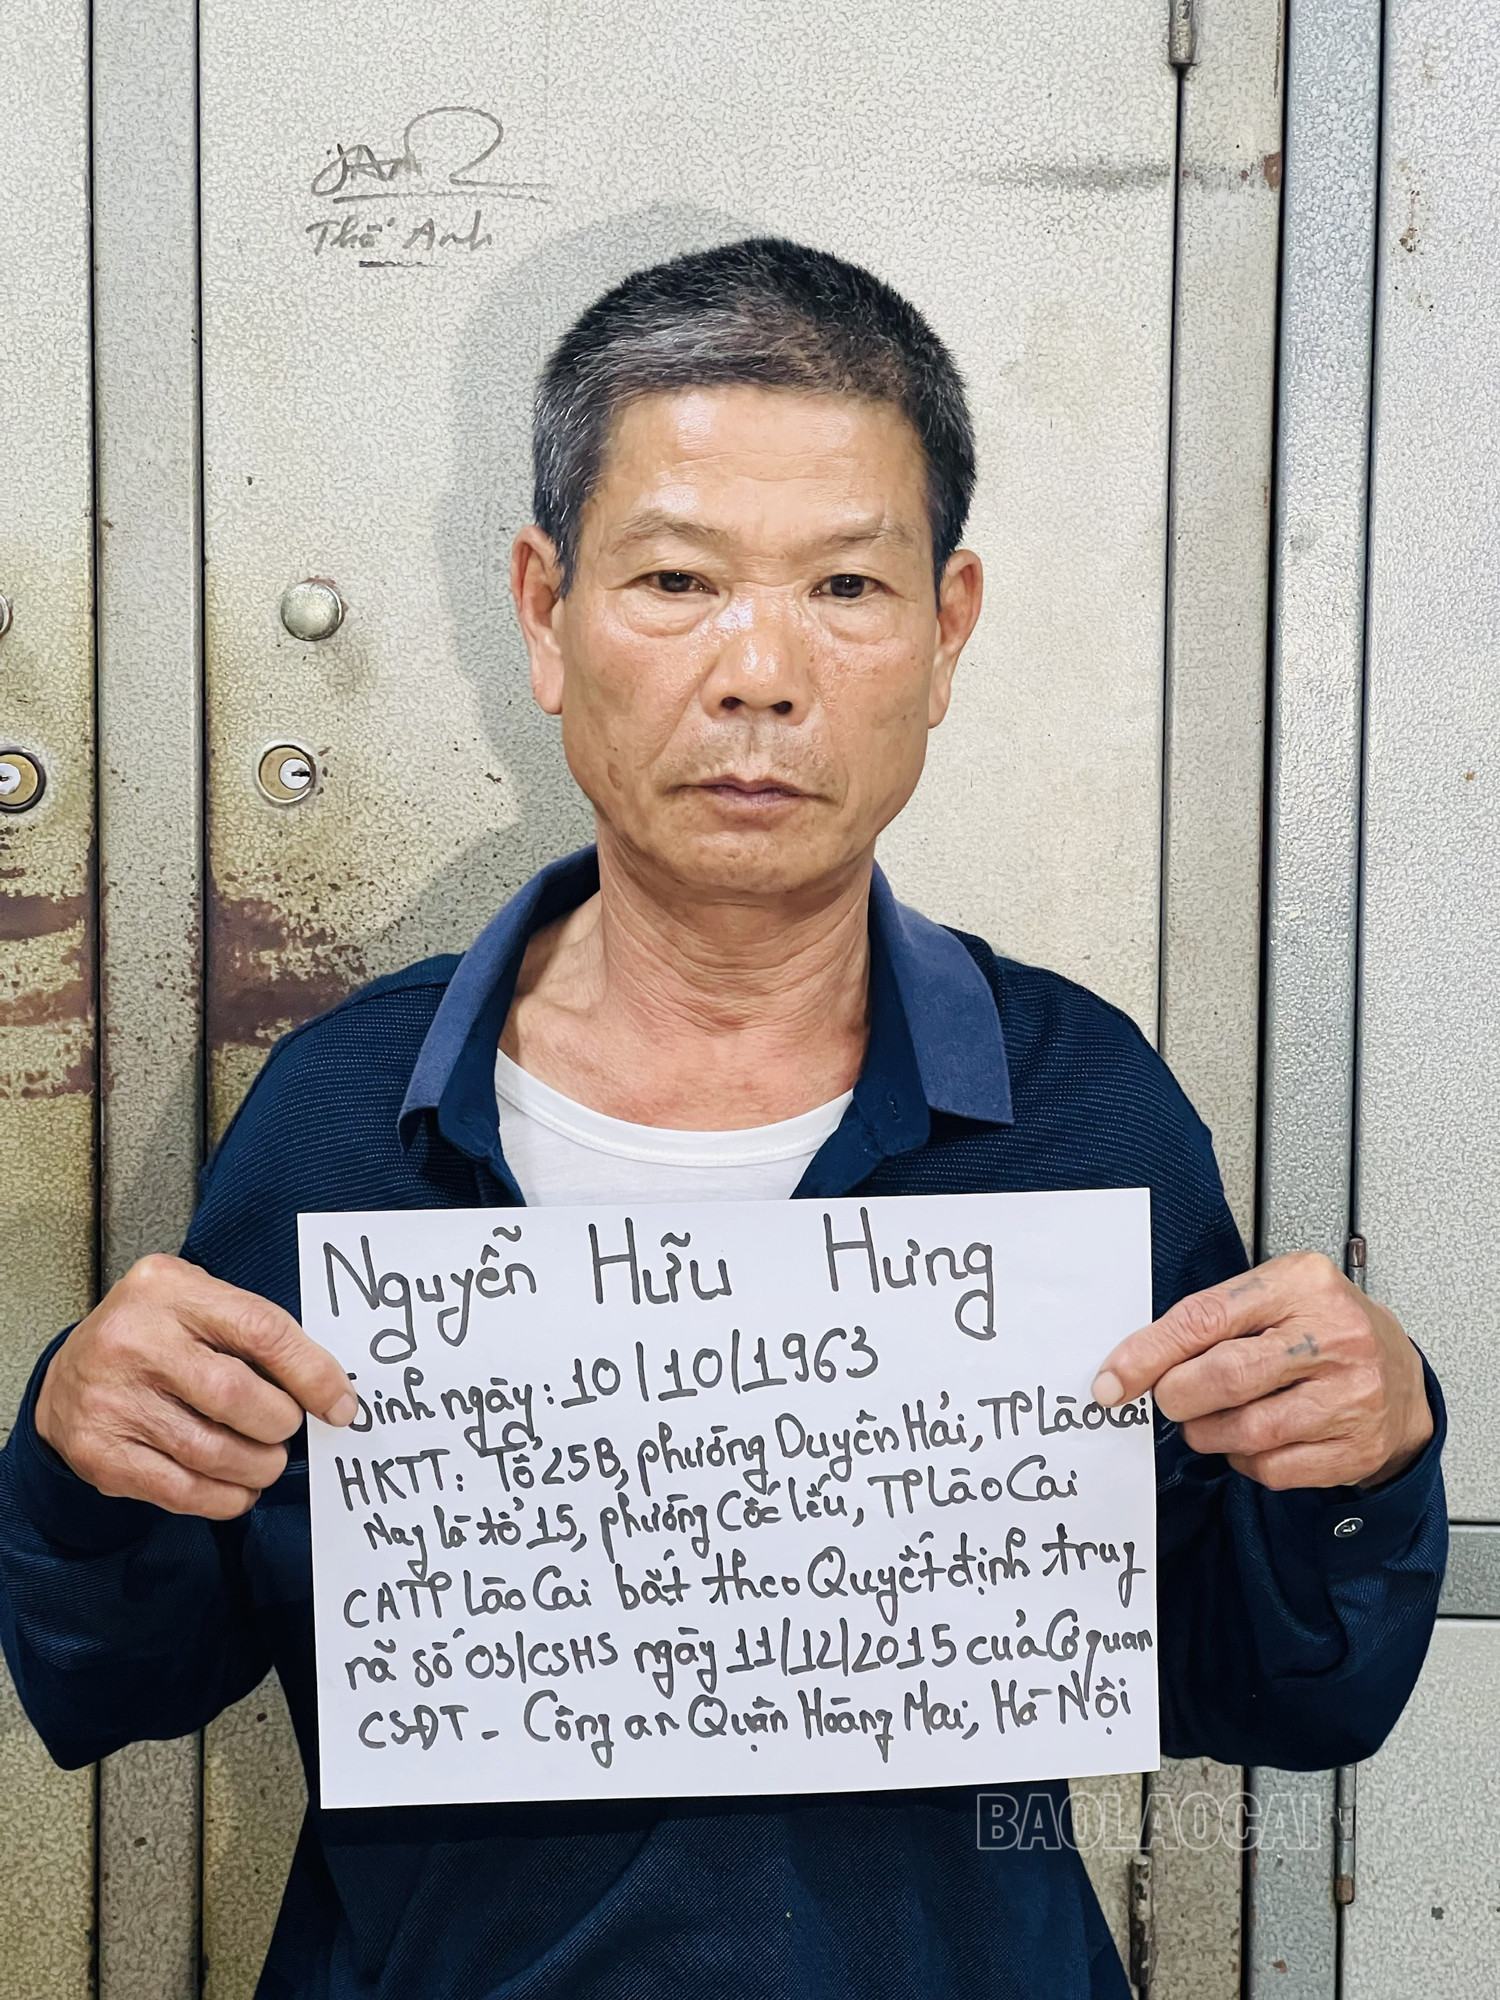 Thế Anh
Nguyễn Hữu Hưng
Sinh ngày: 10/10/1963
HKTT: Tổ 25B, phường Duyên Hải, TP Lào Cai
Nay là tổ 15, phường Cốc Lếu, TP Lào Cai
CATP Lào Cai bắt theo Quyết định truy
nã số 03/CSHS ngày 11/12/2015 của Cơ quan
CSĐT - Công an Quận Hoàng Mai, Hà Nội
BAOLAOCAI